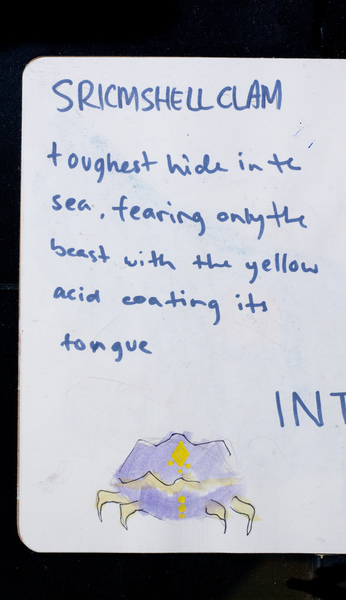 SRICMSHELL CLAM
toughest hide in te
sea, fearing only the
beast with the yellow
acid coating its
tongue
INT